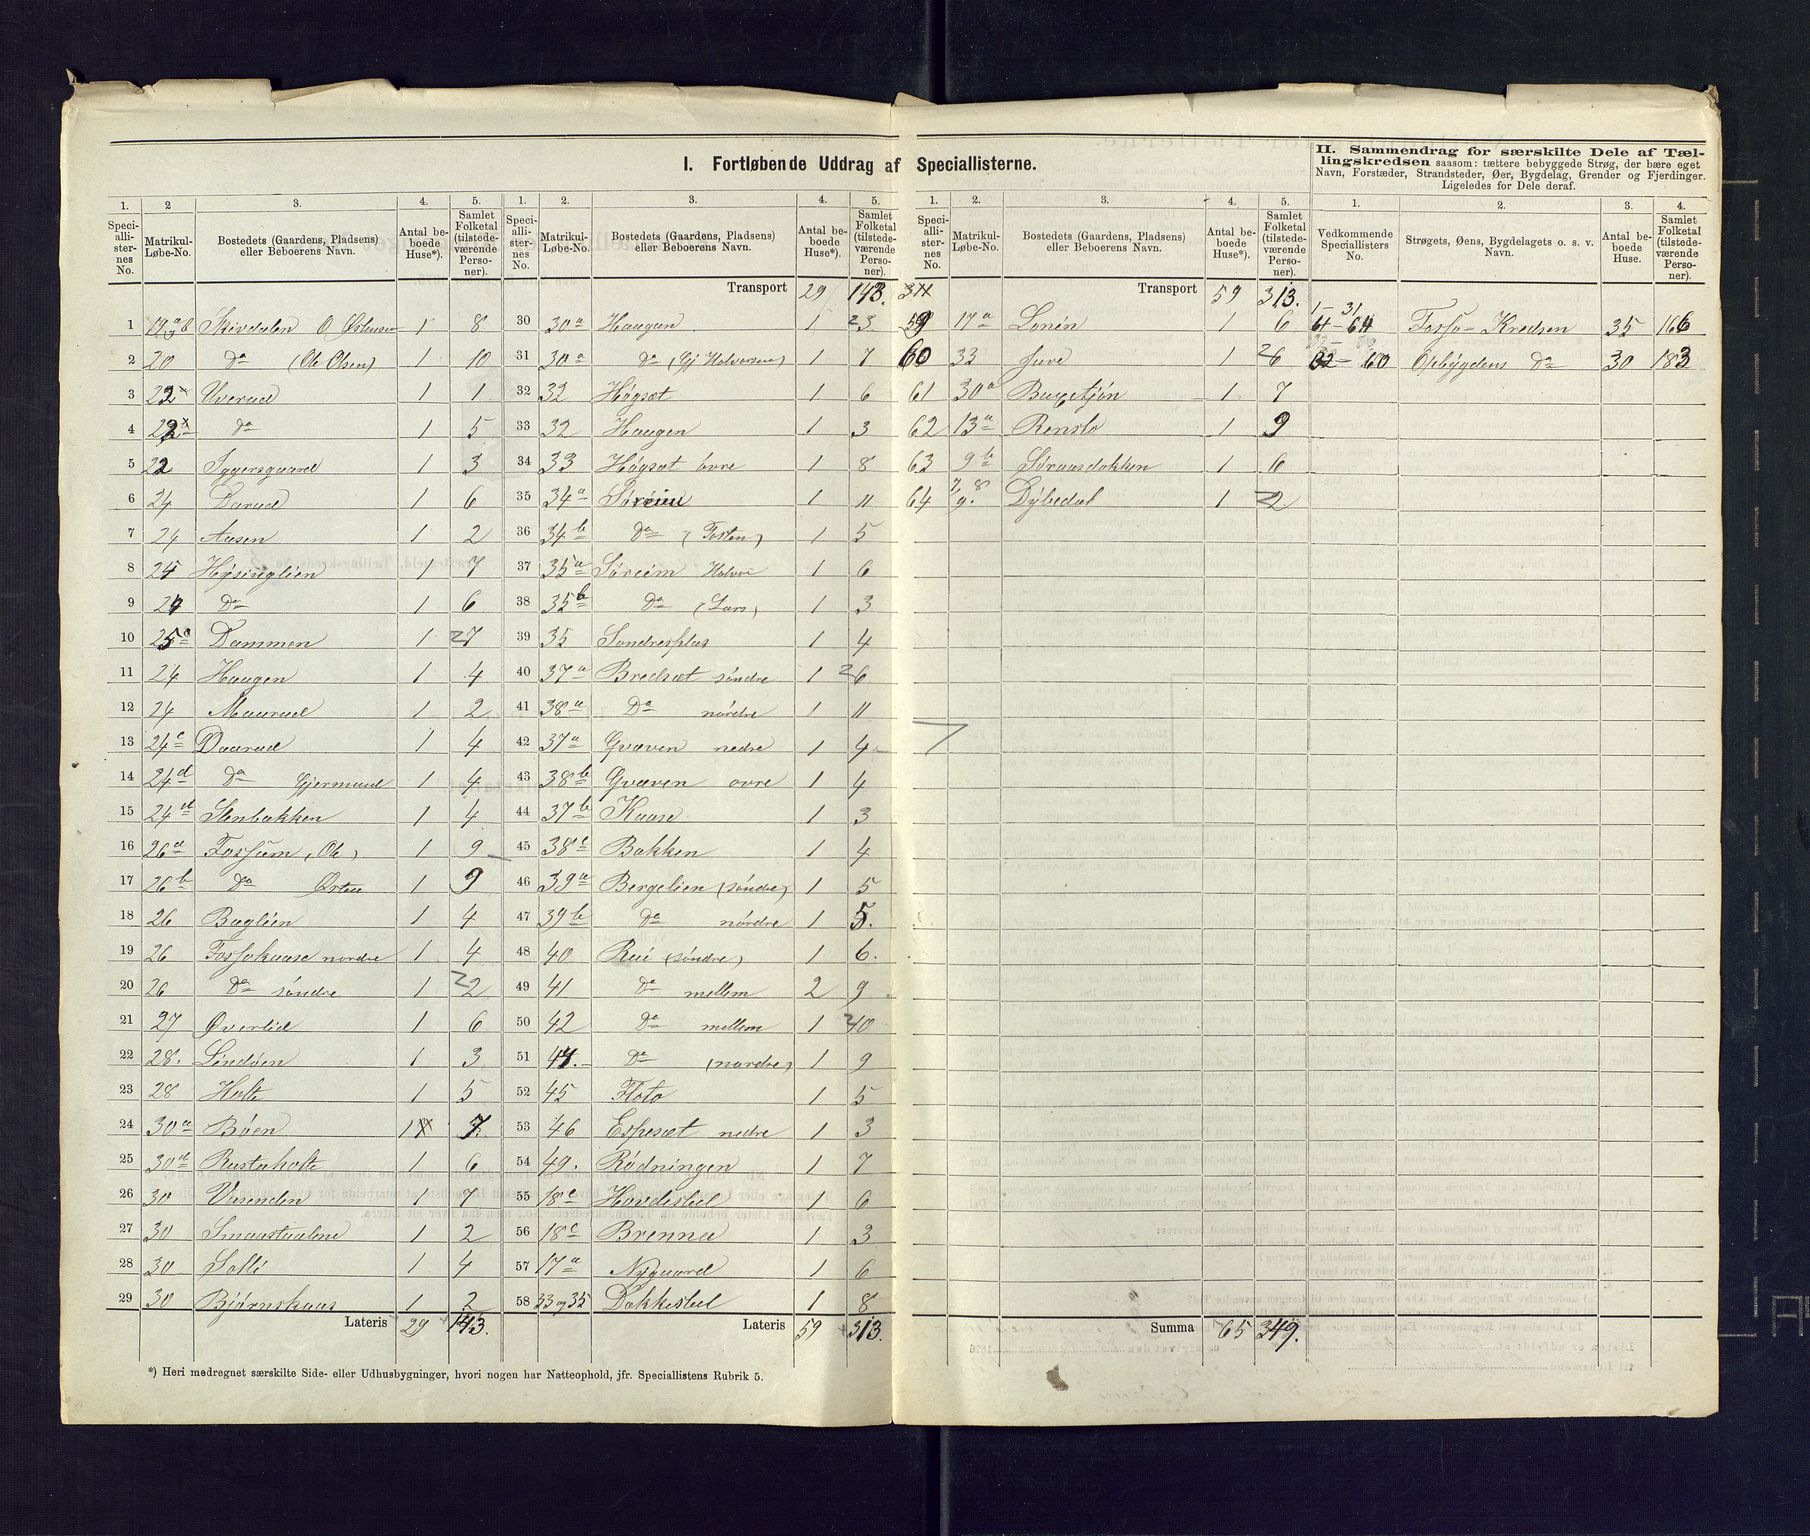 I. Fortløbende Uddrag af Speciallisterne.
II. Sammendrag for særskilte Dele af Tællingskredsen saasom: tættere bebyggede Strøg, der bære eget
Navn, Forstæder, Strandsteder, Øer, Bygdelag, Grender og Fjerdinger.
Ligeledes for Dele deraf.
1. 2 3. 4. 5.
Speciallisternes No. Matrikul-Løbe-No. Bostedets (Gaardens, Pladsens) eller Beboerens Navn. Antal beboede Huse*). Samlet Folketal (tilstedeværende Personer).
1 19 Skivdalen O Østensen 1 8
2 20 Do (Ole Olsen) 1 10
3 22 Uverud 1 1
4 22 Do 1 5
5 22 Tygersgaard 1 3
6 24 Darud 1 6
7 24 Aasen 1 2
8 24 Høsinglien 1 7
9 24 Do 1 6
10 25a Dammen 1 7
11 24 Haugen 1 4
12 24 Maurud 1 2
13 24c Daarud 1 4
14 24d Do Gjermund 1 4
15 24d Stenbakken 1 4
16 26a Fossum (Ole) 1 9
17 26b Do Østen 1 9
18 26 Bæglien 1 4
19 26 Fossokaase nordre 1 4
20 26 Do søndre 1 2
21 27 Øverlid 1 6
22 28. Lindøen 1 3
23 28 Holte 1 5
24 30a Bøen 1 7
25 30d Rustaholte 1 6
26 30 Vasenden 1 7
27 30 Smaastualene 1 2
28 30 Solli 1 4
29 30 Bjørnskaas 1 2
Lateris 29 143.
1. 2. 3. 4. 5.
Speciallisternes No. Matrikul-Løbe-No. Bostedets (Gaardens, Pladsens) eller Beboerens Navn. Antal beboede Huse*). Samlet Folketal (tilstedeværende Personer).
Transport 29 143.
30 30a Haugan 1 3
31 30a Do (Gj Halvorsen) 1 7
32 32 Høgsæt 1 6
33 32 Haugen 1 3
34 33 Høgsæt øvre 1 8
35 34a Søreim 1 11
36 34b Do (Tosten) 1 5
37 35a Søreim Halvor 1 6
38 35b Do (Lars) 1 3
39 35 Sondresplas 1 4
40 37a Bredsæt søndre 1 6
41 38a Do nordre 1 11
42 37a Gvæven nedre 1 4
43 38b Gvæven øvre 1 4
44 37b Kaase 1 3
45 38c Bakken 1 4
46 39a Bergelien (søndre) 1 5
47 39b Do nordre 1 5.
48 40 Rui (søndre) 1 6.
49 41 Do mellem 2 9
50 42 Do mellem 1 10
51 Do (nordre) 1 9
52 45 Floto 1 5
53 46 Espesæt nedre 1 3
54 49. Rødningen 1 7
55 18c Hovdestul 1 6
56 18c Brenna 1 3
57 17a Nygaard 1 6
58 33 og 35 Dokkestul 1 8
Lateris 59 313.
1. 2. 3. 4. 5.
Speciallisternes No. Matrikul-Løbe-No. Bostedets (Gaardens, Pladsens) eller Beboerens Navn. Antal beboede Huse*). Samlet Folketal (tilstedeværende Personer).
Transport 59 313.
59 17a Lonin 1 6
60 33 Juve 1 6
61 30a Buxetjøn 1 7
62 13a Renslo 1 9
63 9b Søraasdokken 1 6
64 7, 8 9. Dybedal 1 2
Summa 65 349.
1. 2. 3. 4.
Vedkommende Speciallisters No. Strøgets, Øens, Bygdelagets o. s. v. Navn. Antal beboede Huse. Samlet Folketal (tilstedeværende Personer).
1-31 61-64 Fosso-Kredsen 35 166
32-60 Opbygdens Do 30 183
*) Heri medregnet særskilte Side- eller Udhusbygninger, hvori nogen har Natteophold, jfr. Speciallistens Rubrik 5.